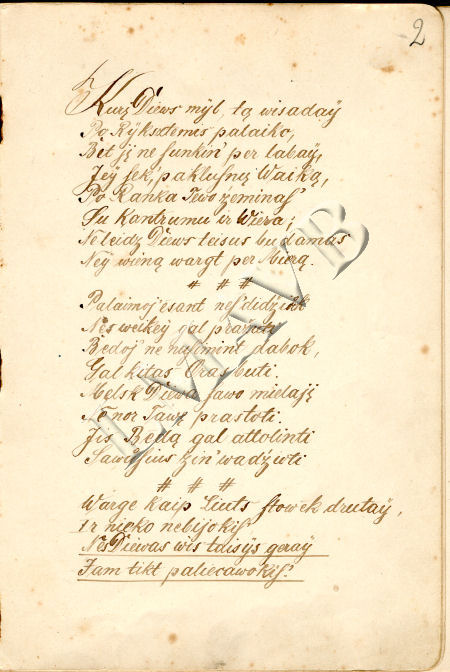 2
Kurį Diews myl, tą wisadaÿ
Po Rÿksztemis palaiko,
Bet jį ne sunkin' per labaÿ,
Jey sek, paklusnų Waiką,
Po Ranka Tewo źeminas'
Su Kantrumu ir Wiera;
Neleidz Diews teisus budamas
Ney wieną wargt per Mierą.
# # #
Palaimoj' esant nes'didźůk
Nes weikey gal
Bedoj' ne nusimint dabok,
Gal kitas Oras buti.
Melsk Diewa sawo mielajį
Ne nor Tawę prastoti.
Jis Bedą gal attolinti
Sawusius źin' wadźioti
# # #
Warge kaip Liuts stowek drutaÿ,
ir nieko nebijokis'
Nes Diewas wis taisÿs geraÿ
Jam tikt paliecawokis'.
LMAVB